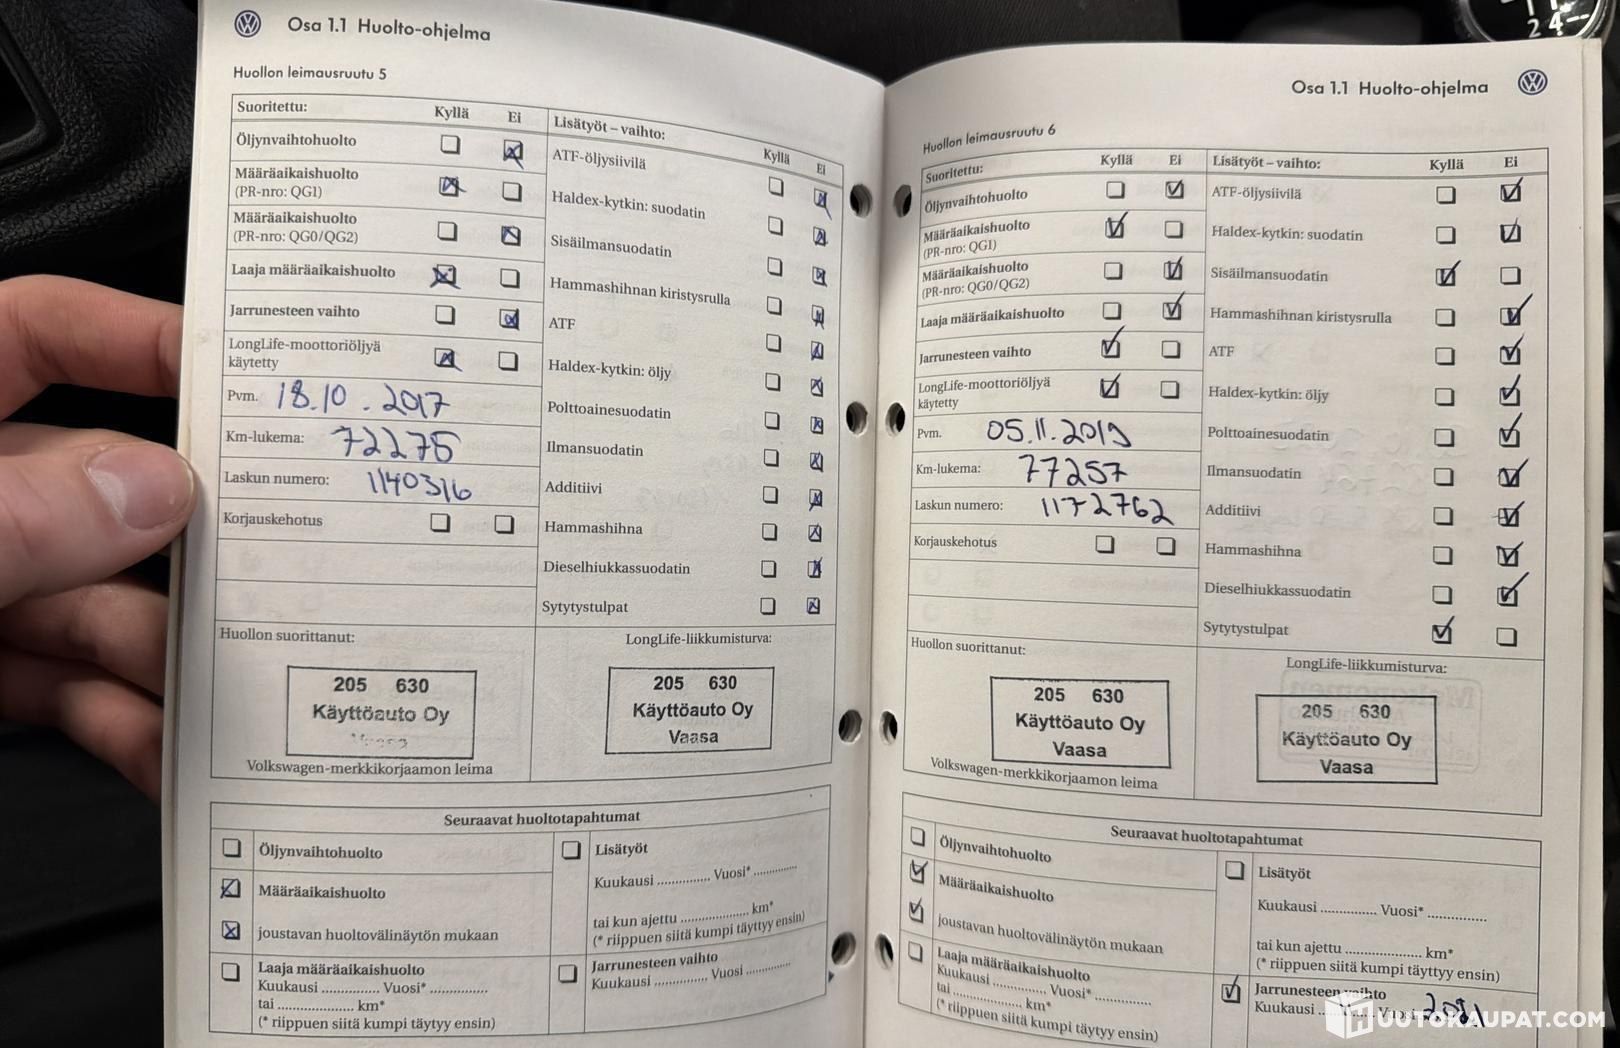 Osa 1.1 Huolto-ohjelma
Huollon leimausruutu 5
Suoritettu: Kyllä Ei
Öljynvaihtohuolto
Määräaikaishuolto
(PR-nro: QG1)
Määräaikaishuolto
(PR-nro: QG0/QG2)
Laaja määräaikaishuolto
Jarrunesteen vaihto
LongLife-moottoriöljyä
käytetty
Pvm. 18.10.2017
Km-lukema: 72275
Laskun numero: 1140316
Korjauskehotus
Lisätyöt – vaihto: Kyllä Ei
ATF-öljysiivilä
Haldex-kytkin: suodatin
Sisäilmansuodatin
Hammashihnan kiristysrulla
ATF
Haldex-kytkin: öljy
Polttoainesuodatin
Ilmansuodatin
Additiivi
Hammashihna
Dieselhiukkassuodatin
Sytytystulpat
Huollon suorittanut:
205 630
Käyttöauto Oy
Vaasa
Volkswagen-merkkikorjaamon leima
LongLife-liikkumisturva:
205 630
Käyttöauto Oy
Vaasa
Seuraavat huoltotapahtumat
Öljynvaihtohuolto
Määräaikaishuolto
joustavan huoltovälinäytön mukaan
Laaja määräaikaishuolto
Kuukausi .............. Vuosi* ..............
tai .................... km*
(* riippuen siitä kumpi täytyy ensin)
Lisätyöt
Kuukausi .............. Vuosi* ..............
tai kun ajettu .................... km*
(* riippuen siitä kumpi täyttyy ensin)
Jarrunesteen vaihto
Kuukausi .............. Vuosi ..............
Osa 1.1 Huolto-ohjelma
Huollon leimausruutu 6
Suoritettu: Kyllä Ei
Öljynvaihtohuolto
Määräaikaishuolto
(PR-nro: QG1)
Määräaikaishuolto
(PR-nro: QG0/QG2)
Laaja määräaikaishuolto
Jarrunesteen vaihto
LongLife-moottoriöljyä
käytetty
Pvm. 05.11.2019
Km-lukema: 77257
Laskun numero: 1172762
Korjauskehotus
Lisätyöt – vaihto: Kyllä Ei
ATF-öljysiivilä
Haldex-kytkin: suodatin
Sisäilmansuodatin
Hammashihnan kiristysrulla
ATF
Haldex-kytkin: öljy
Polttoainesuodatin
Ilmansuodatin
Additiivi
Hammashihna
Dieselhiukkassuodatin
Sytytystulpat
Huollon suorittanut:
205 630
Käyttöauto Oy
Vaasa
Volkswagen-merkkikorjaamon leima
LongLife-liikkumisturva:
205 630
Käyttöauto Oy
Vaasa
Seuraavat huoltotapahtumat
Öljynvaihtohuolto
Määräaikaishuolto
joustavan huoltovälinäytön mukaan
Laaja määräaikaishuolto
Kuukausi .............. Vuosi* ..............
tai .................... km*
(* riippuen siitä kumpi täytyy ensin)
Lisätyöt
Kuukausi .............. Vuosi* ..............
tai kun ajettu .................... km*
(* riippuen siitä kumpi täyttyy ensin)
Jarrunesteen vaihto
Kuukausi .............. Vuosi 2021
HUUTOKAUPAT.COM
2 4